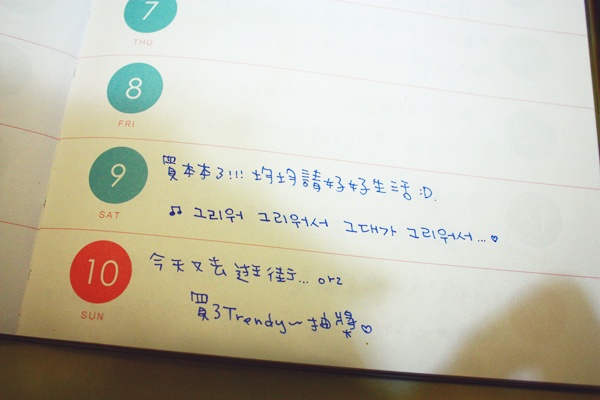 7
THU
8
FRI
9
SAT
買本本了!!! 均均請好好生活 :D.
♫ 그리워 그리워서 그대가 그리워서...♡
10
SUN
今天又去逛街... orz
買了Trendy～抽獎♡.